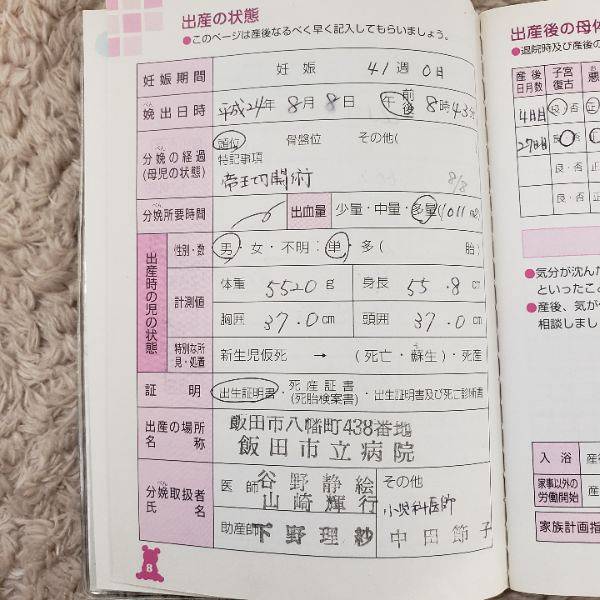 出産の状態
●このページは産後なるべく早く記入してもらいましょう。
妊娠期間 妊娠 41週 0日
娩出日時 平成24年 8月 8日 午 前 後 8時43分
分娩の経過 (母児の状態) 頭位 骨盤位 その他(
特記事項
帝王切開術 8/8
分娩所要時間 出血量 少量・中量・多量(1011ml)
出産時の児の状態
性別・数 男・女・不明: 単・多( 胎)
計測値 体重 5520g 身長 55.8cm
胸囲 37.0cm 頭囲 37.0cm
特別な所見・処置 新生児仮死 → (死亡・蘇生)・死産
証明 出生証明書・死産証書(死胎検案書)・出生証明書及び死亡診断書
出産の場所 名称 飯田市八幡町438番地
飯田市立病院
分娩取扱者 氏名 医師 谷野静絵 その他
山崎輝行 小児科医師
助産師 下野理紗 中田節子
8
出産後の母体
●退院時及び産後の
産後日月数 子宮復古 悪
4日目 良・否 正
27日目 良・否 正
良・否 正
良・否 正
●気分が沈んだ
といったこと
●産後、気が
相談しまし
入浴 産
家事以外の労働開始 産
家族計画指